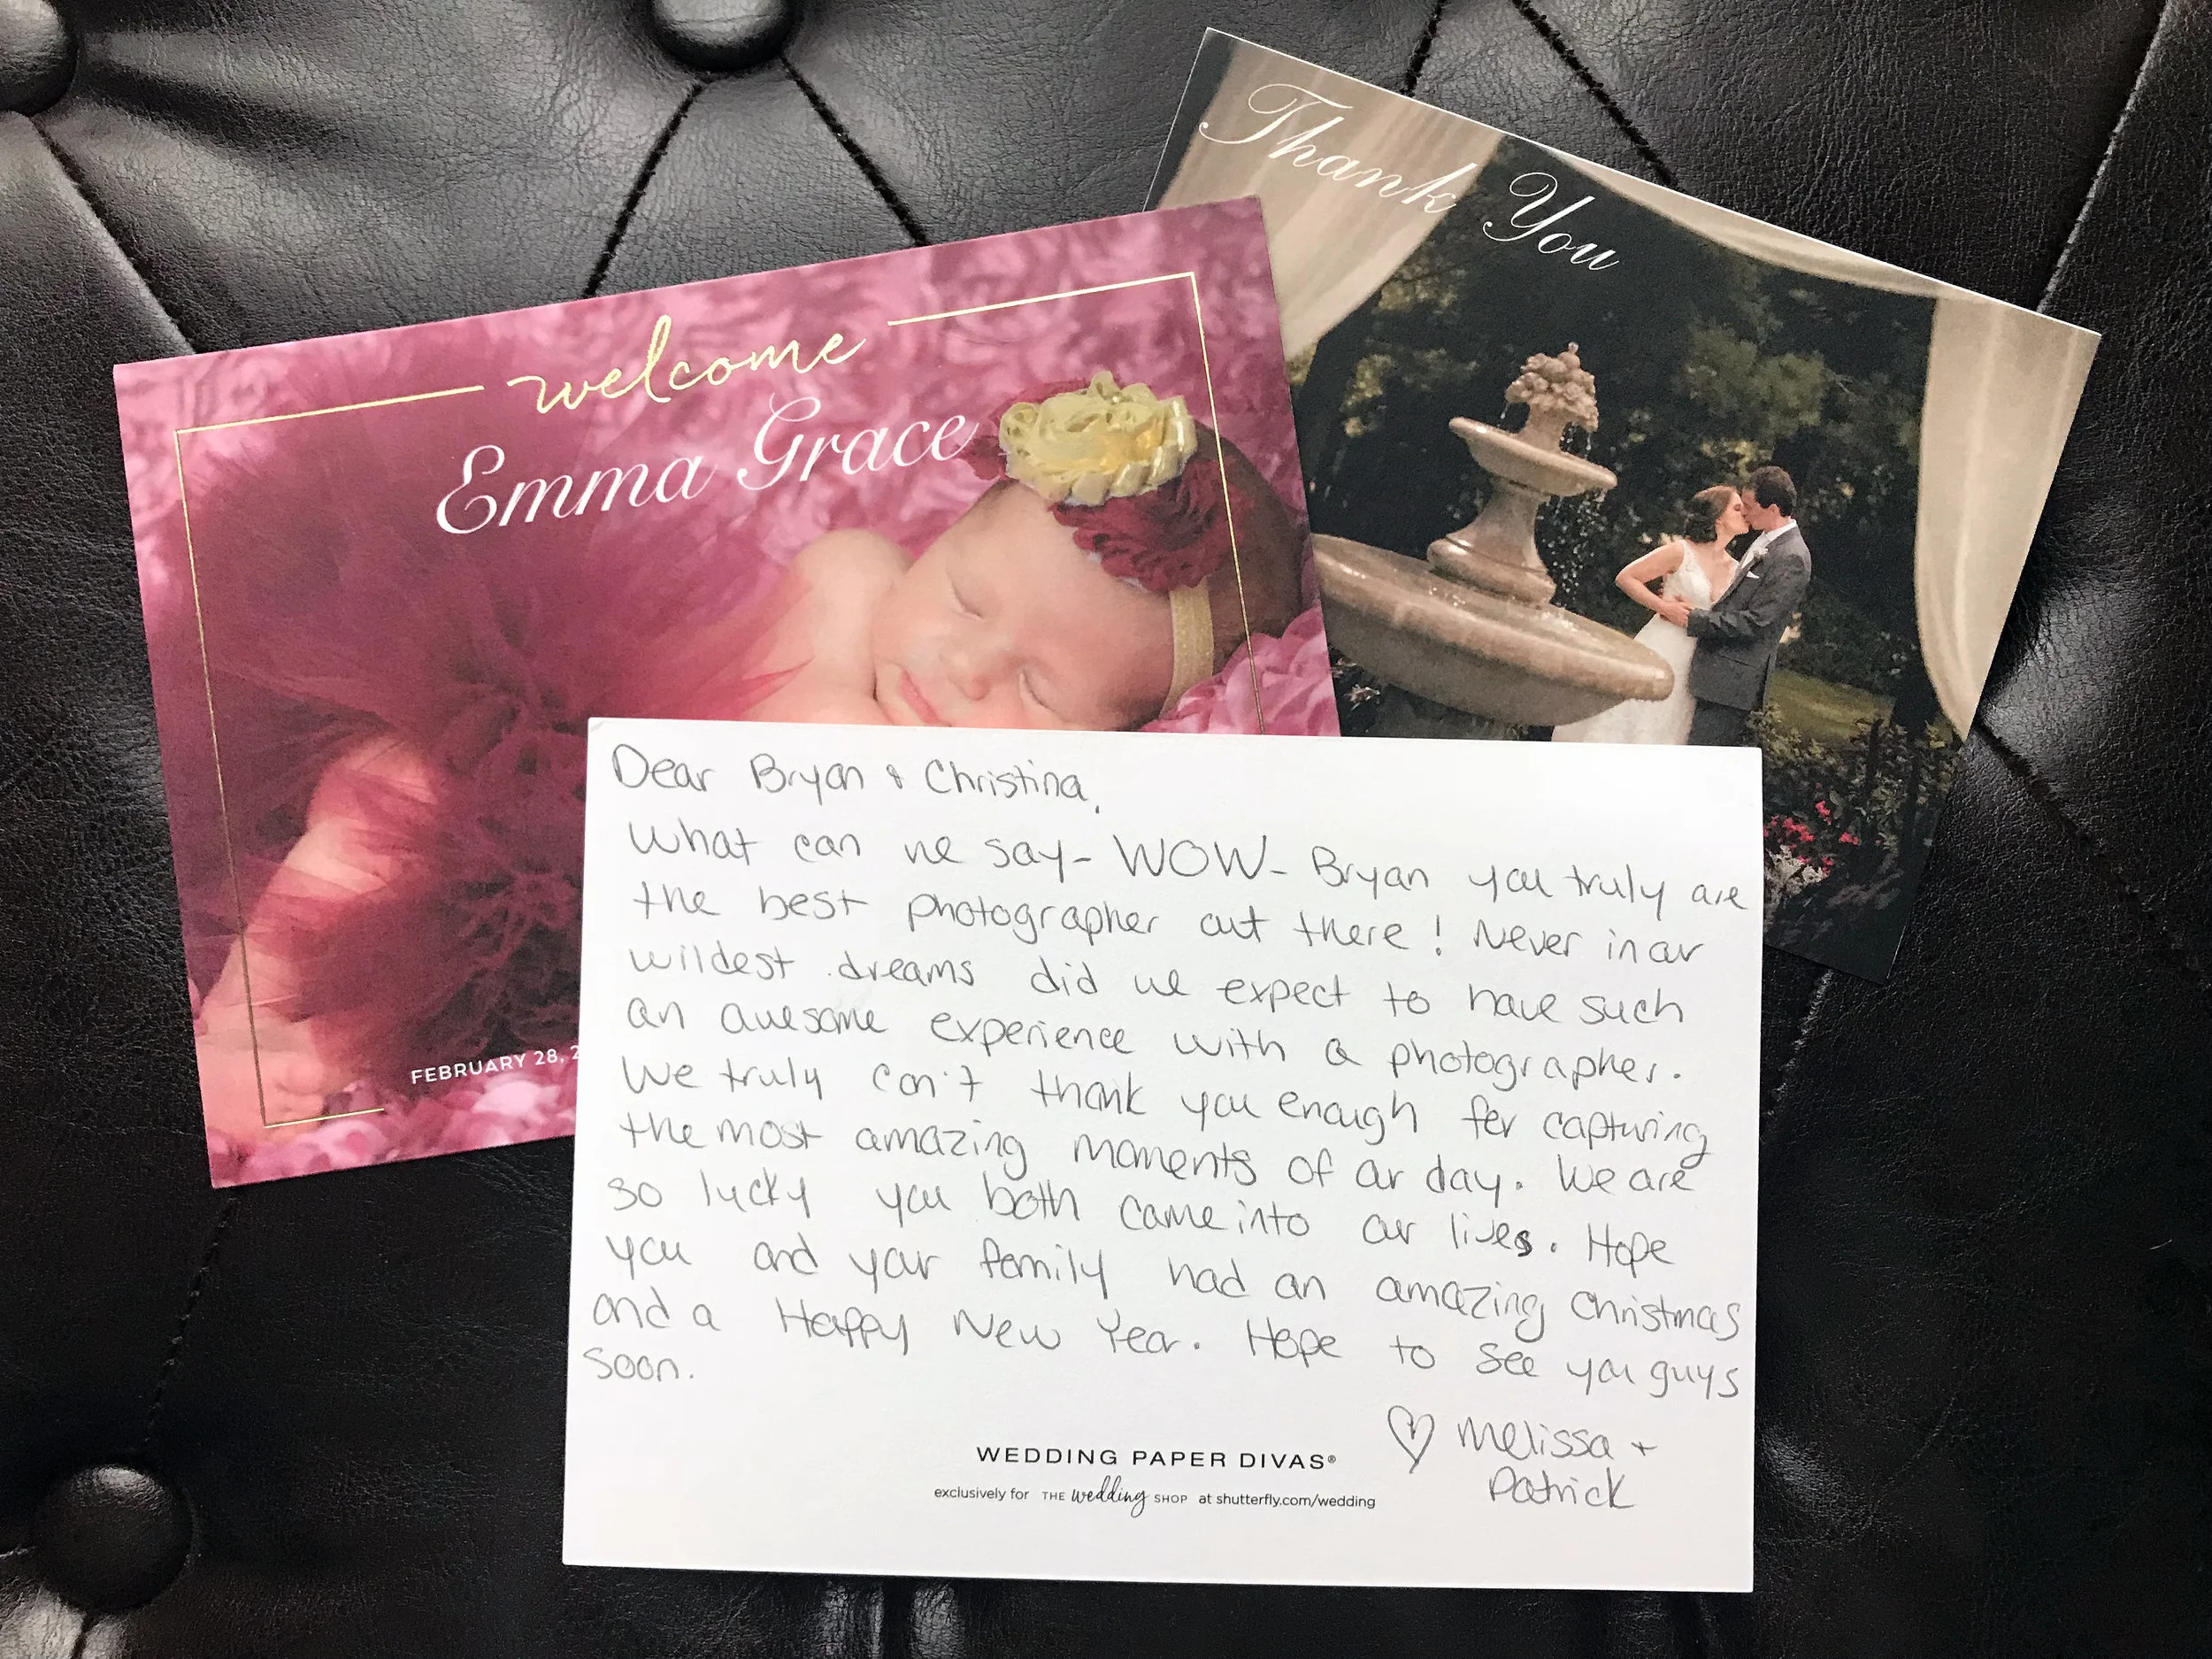 Thank You
welcome
Emma Grace
FEBRUARY 28, 2
Dear Bryan & Christina,
What can we say- WOW- Bryan you truly are
the best photographer out there! Never in our
wildest dreams did we expect to have such
an awesome experience with a photographer.
We truly can't thank you enough for capturing
the most amazing moments of our day. We are
so lucky you both came into our lives. Hope
you and your family had an amazing Christmas
and a Happy New Year. Hope to see you guys
soon.
♡ Melissa +
Patrick
WEDDING PAPER DIVAS®
exclusively for THE wedding SHOP at shutterfly.com/wedding